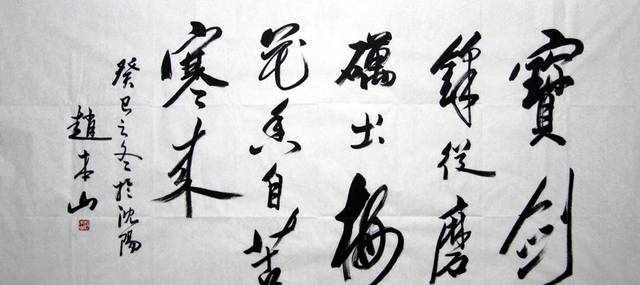 寶劍
鋒從磨
礪出梅
花香自苦
寒来
癸巳之冬於沈陽
趙本山